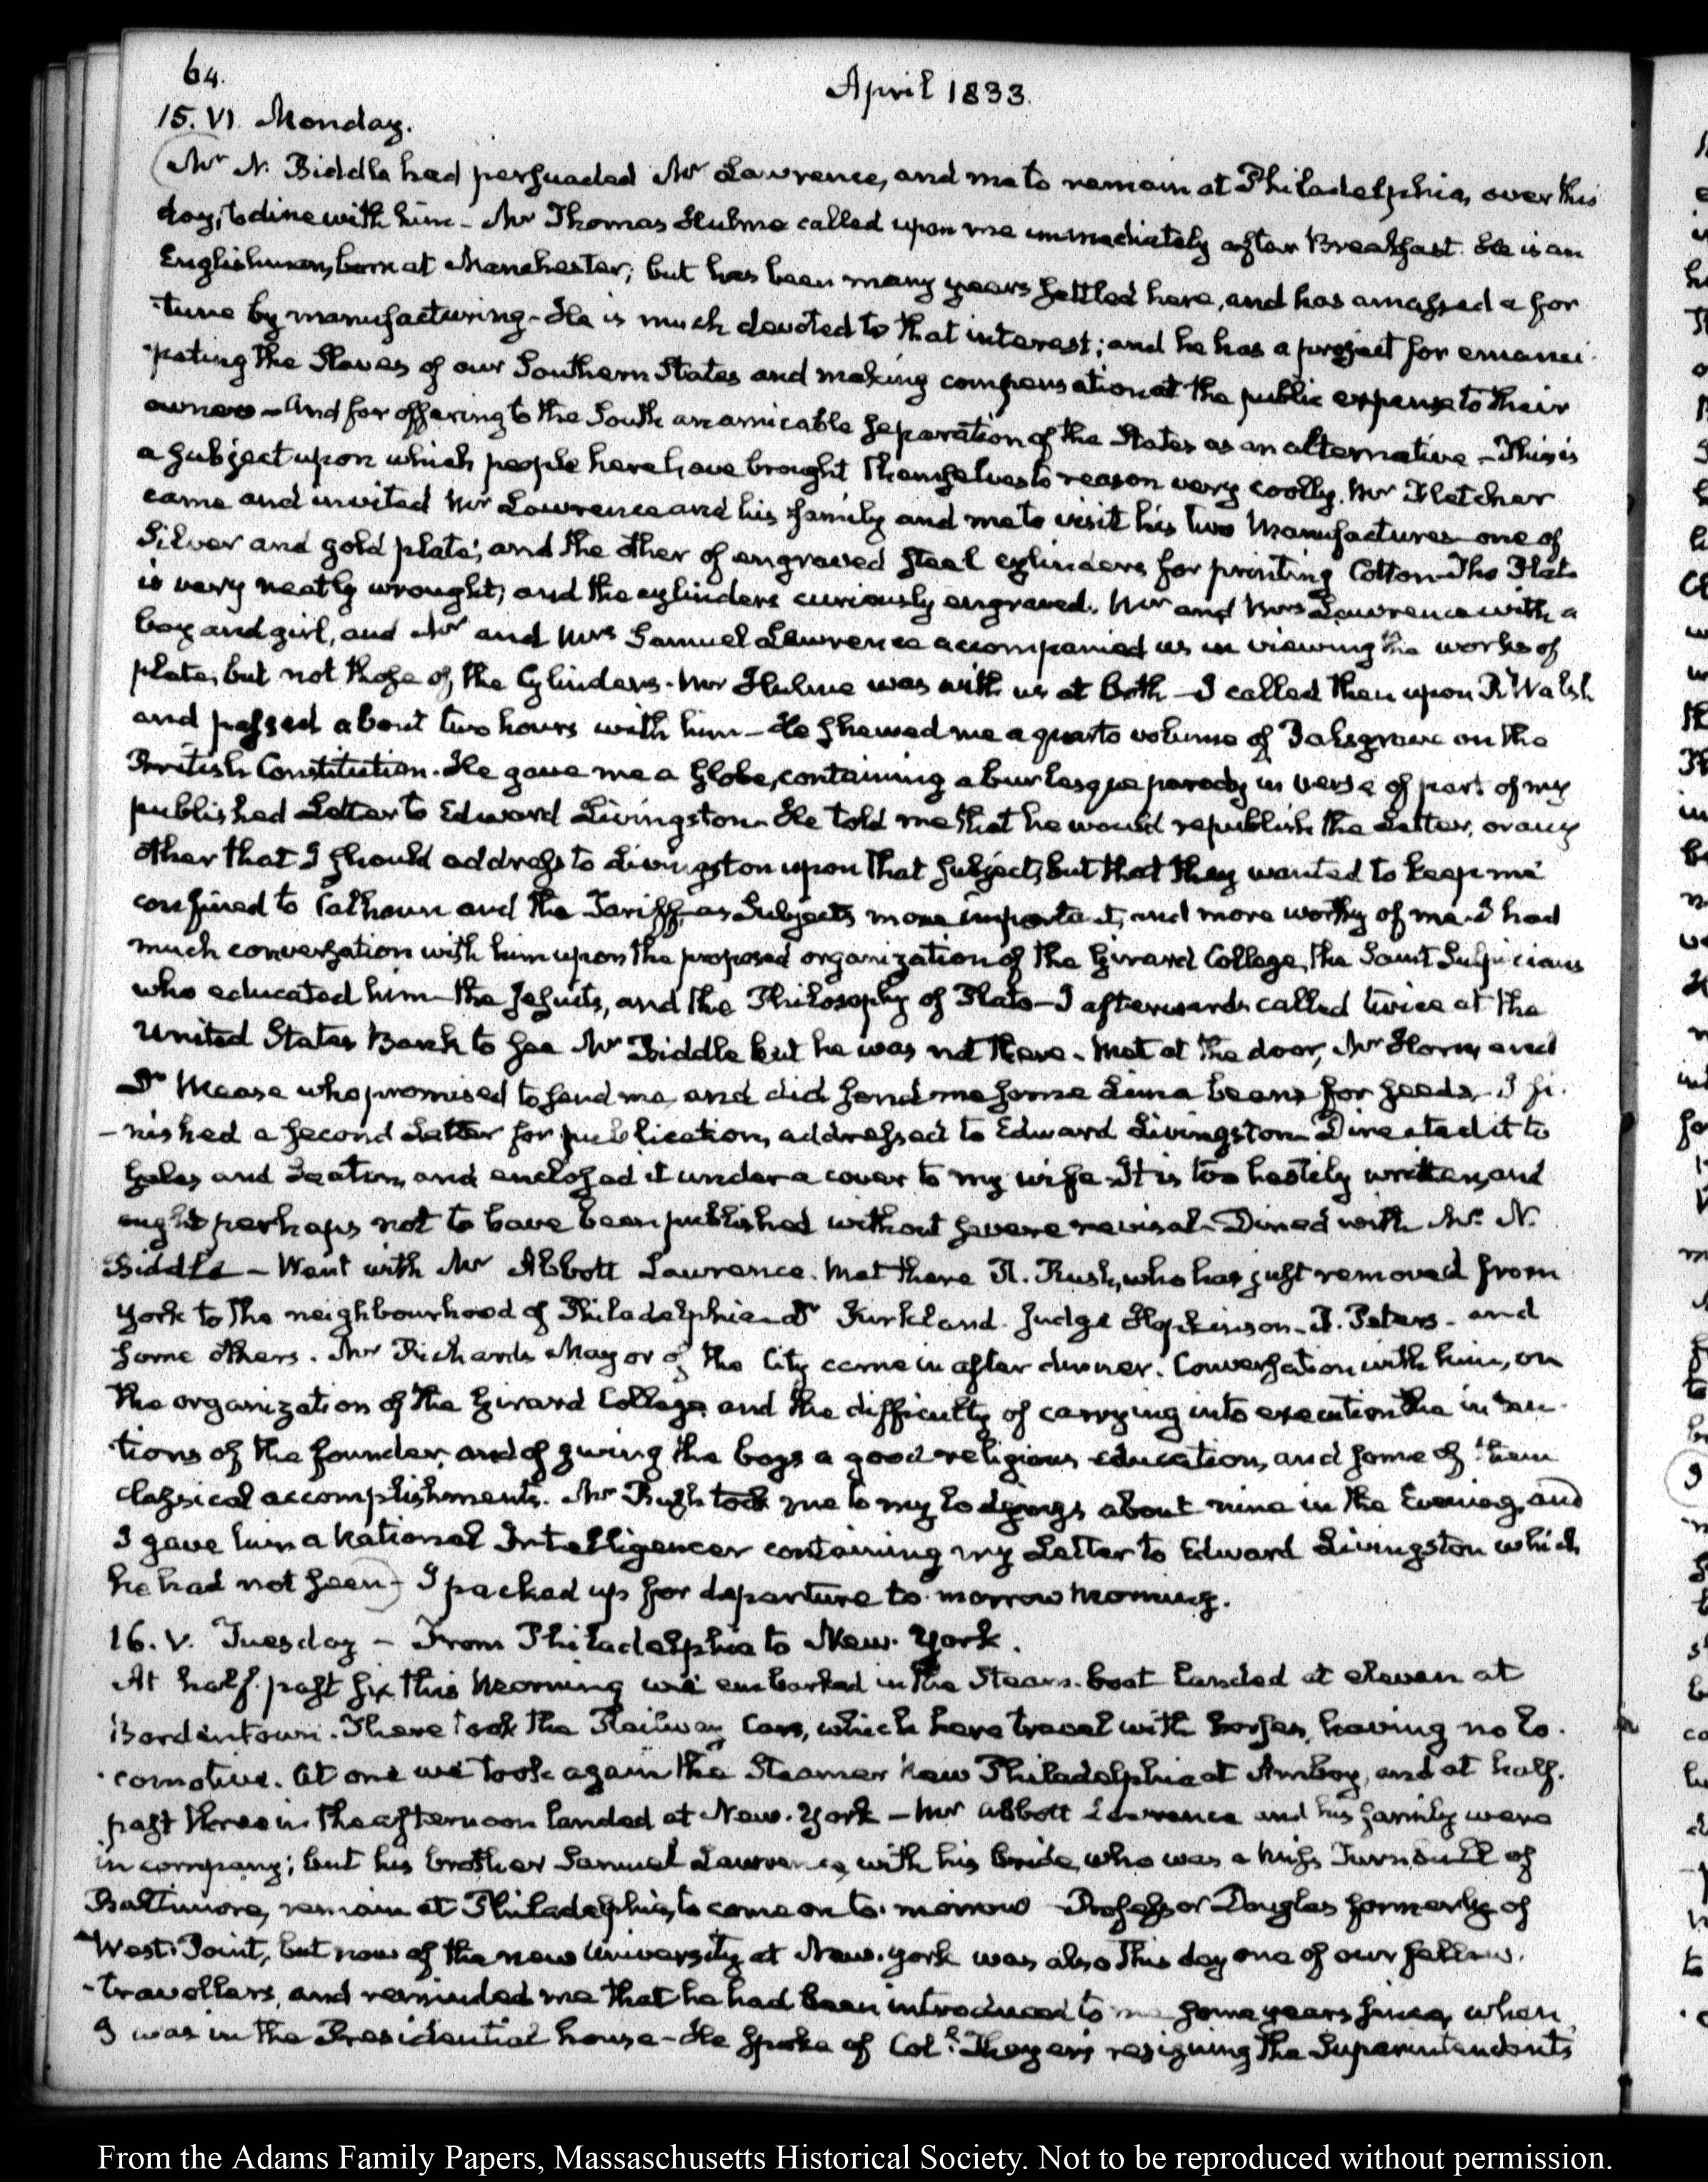 64.
April 1833.
15. VI. Monday.
Mr N. Biddle had persuaded Mr Lawrence, and me to remain at Philadelphia, over this
day, to dine with him – Mr Thomas Hulme called upon me immediately after Breakfast. He is an
Englishman, born at Manchester; but has been many years settled here, and has amassed a for
-tune by manufacturing – He is much devoted to that interest; and he has a project for emanci-
-pating the Slaves of our Southern States and making compensation at the public expense to their
owners – and for offering to the South an amicable separation of the States as an alternative – This is
a subject upon which people here have brought themselves to reason very coolly. Mr Fletcher
came and invited Mr Lawrence and his family and me to visit his two Manufactures – one of
Silver and gold plate; and the other of engraved steel cylinders for printing Cotton – The Plate
is very neatly wrought, and the cylinders curiously engraved. Mr and Mrs Lawrence with a
boy and girl, and Mr and Mrs Samuel Lawrence accompanied us in viewing the works of
plate, but not those of the Cylinders. Mr Hulme was with us at both – I called then upon R. Walsh
and passed about two hours with him – He shewed me a quarto volume of on the
British Constitution. He gave me a Globe, containing a burlesque parody in verse of part of my
published Letter to Edward Livingston – He told me that he would republish the Letter, or any
other that I should address to Livingston upon that subject, but that they wanted to keep me
confined to Calhoun and the Tariff, as subjects more important, and more worthy of me – I had
much conversation with him upon the proposed organization of the Girard College, the Saint Sulpicians
who educated him – the Jesuits, and the Philosophy of Plato – I afterwards called twice at the
United States Bank to see Mr Biddle but he was not there – Met at the door, Mr and
Dr Mease who promised to send me, and did send me some Lima beans for seeds – I fi-
-nished a second Letter for publication, addressed to Edward Livingston – Directed it to
Gales and Seaton, and enclosed it under a cover to my wife – It is too hastily written, and
ought perhaps not to have been published without severe revisal – Dined with Mr N.
Biddle – Went with Mr Abbott Lawrence. Met there R. Rush, who has just removed from
York to the neighbourhood of Philadelphia – Dr Kirkland. Judge Hopkinson – R. Peters – and
some others. Mr Richards Mayor of the City came in after dinner. Conversation with him, on
the organization of the Girard College, and the difficulty of carrying into execution the inten-
-tions of the founder, and of giving the boys a good religious education, and some of them
classical accomplishments. Mr Rush took me to my lodgings about nine in the Evening, and
I gave him a National Intelligencer containing my Letter to Edward Livingston which
he had not seen – I packed up for departure to-morrow Morning.
16. V. Tuesday – From Philadelphia to New-York.
At half-past six this Morning we embarked in the Steam-boat landed at eleven at
Bordentown. There took the Railway Cars, which here travel with horses, having no lo-
-comotive. At one we took again the Steamer New Philadelphia at Amboy, and at half-
past three in the afternoon landed at New-York – Mr Abbott Lawrence and his family were
in company; but his brother Samuel Lawrence, with his bride, who was a Miss Turnbull of
Baltimore, remain at Philadelphia, to come on to-morrow – Professor Douglas formerly of
West-Point, but now of the new University at New-York was also this day one of our fellow-
-travellers, and reminded me that he had been introduced to me some years since, when
I was in the Presidential house – He spoke of Col. Thayer's resigning the Superintendents
From the Adams Family Papers, Massaschusetts Historical Society. Not to be reproduced without permission.